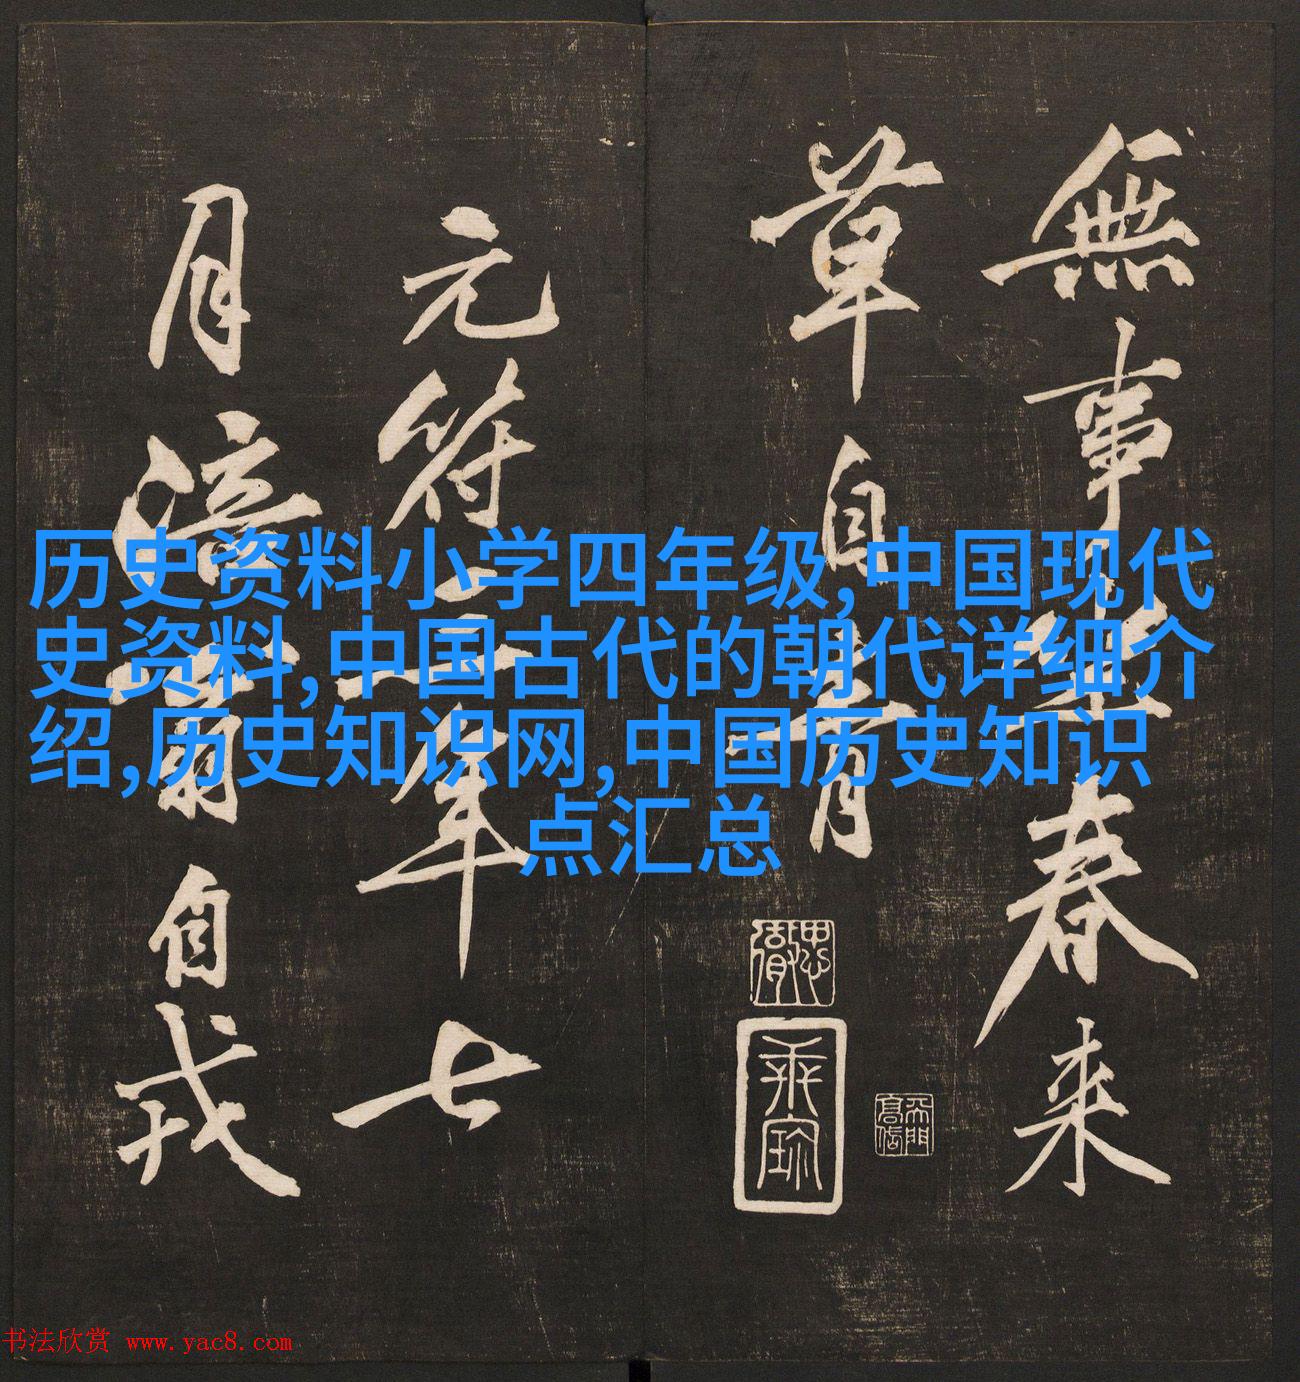 無事坐春来
草自青
元符三年七
月涪翁自戎
历史资料小学四年级,中国现代
史资料,中国古代的朝代详细介
绍,历史知识网,中国历史知识
点汇总
书法欣赏 www.yac8.com